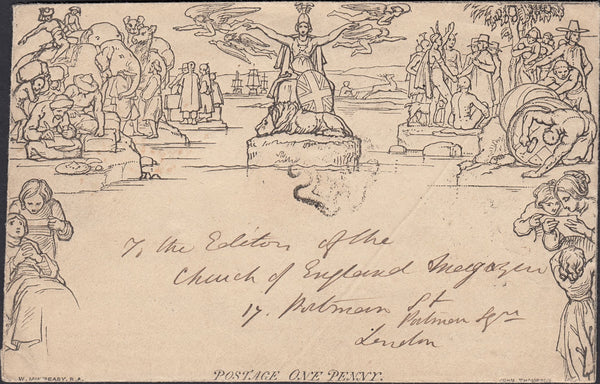 To the Editor of the
Church of England Magazin
17. Portman St
Portman Sqre
London
POSTAGE ONE PENNY.
W. MULREADY, R.A.
JOHN THOMPSON